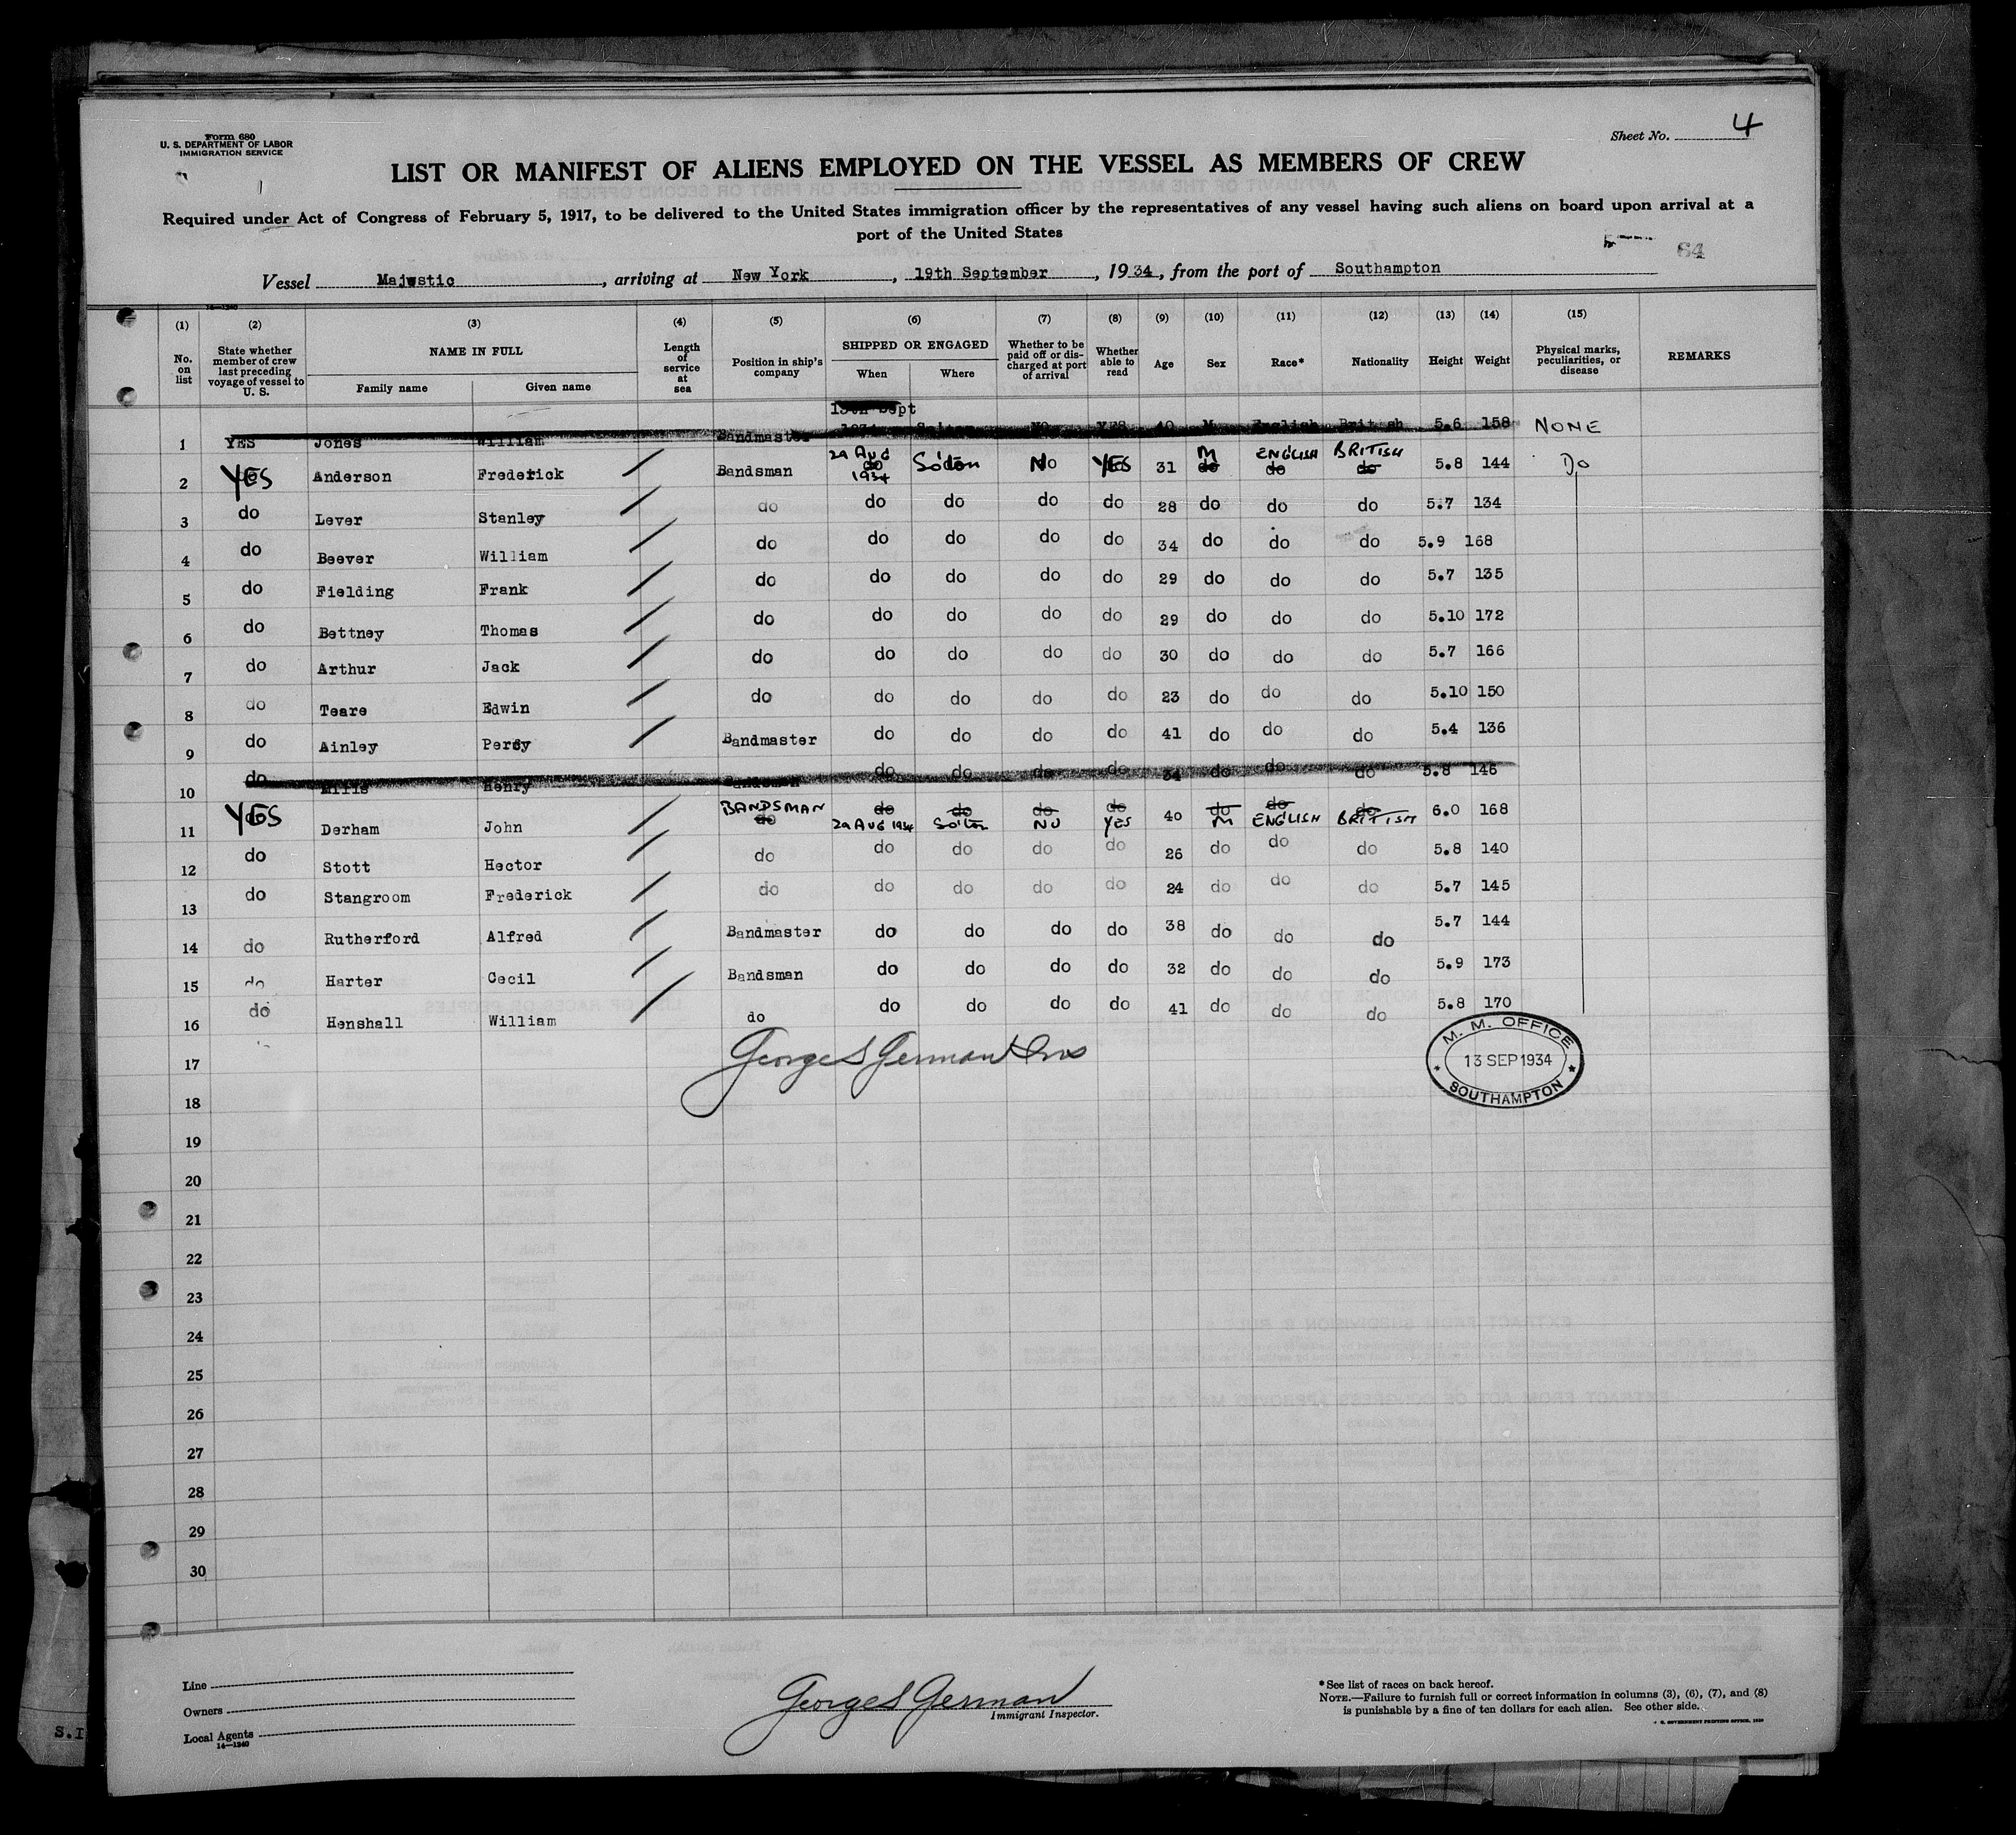 Form 680
U. S. DEPARTMENT OF LABOR
IMMIGRATION SERVICE
Sheet No. 4
LIST OR MANIFEST OF ALIENS EMPLOYED ON THE VESSEL AS MEMBERS OF CREW
Required under Act of Congress of February 5, 1917, to be delivered to the United States immigration officer by the representatives of any vessel having such aliens on board upon arrival at a
port of the United States
64
Vessel Majestic, arriving at New York, 19th September, 1934, from the port of Southampton
14—1240
(1) (2) (3) (4) (5) (6) (7) (8) (9) (10) (11) (12) (13) (14) (15)
No. on list State whether member of crew last preceding voyage of vessel to U. S. NAME IN FULL Family name Given name Length of service at sea Position in ship's company SHIPPED OR ENGAGED When Where Whether to be paid off or discharged at port of arrival Whether able to read Age Sex Race* Nationality Height Weight Physical marks, peculiarities, or disease REMARKS
13th Sept
1 YES Jones William Bandmaster 1934 Soiton NO YES 40 M English British 5.6 158 NONE
2 YES Anderson Frederick Bandsman 29 AUG 1934 So'ton No YES 31 M do ENGLISH do BRITISH do 5.8 144 Do
3 do Lever Stanley do do do do do 28 do do do 5.7 134
4 do Beever William do do do do do 34 do do do 5.9 168
5 do Fielding Frank do do do do do 29 do do do 5.7 135
6 do Bettney Thomas do do do do do 29 do do do 5.10 172
7 do Arthur Jack do do do do do 30 do do do 5.7 166
8 do Teare Edwin do do do do do 23 do do do 5.10 150
9 do Ainley Percy Bandmaster do do do do 41 do do do 5.4 136
10 do Henry Bandsman do do do do 34 do do do 5.8 146
11 YES Derham John BANDSMAN do do 29 AUG 1934 do So'ton do NO do YES 40 do M do ENGLISH do BRITISH 6.0 168
12 do Stott Hector do do do do do 26 do do do 5.8 140
13 do Stangroom Frederick do do do do do 24 do do do 5.7 145
14 do Rutherford Alfred Bandmaster do do do do 38 do do do 5.7 144
15 do Harter Cecil Bandsman do do do do 32 do do do 5.9 173
16 do Henshall William do do do do do 41 do do do 5.8 170
17 George S German Ins
M. M. OFFICE
13 SEP 1934
SOUTHAMPTON
18
19
20
21
22
23
24
25
26
27
28
29
30
Line
Owners
Local Agents
14—1240
George S German
Immigrant Inspector.
*See list of races on back hereof.
NOTE.—Failure to furnish full or correct information in columns (3), (6), (7), and (8)
is punishable by a fine of ten dollars for each alien. See other side.
S.I